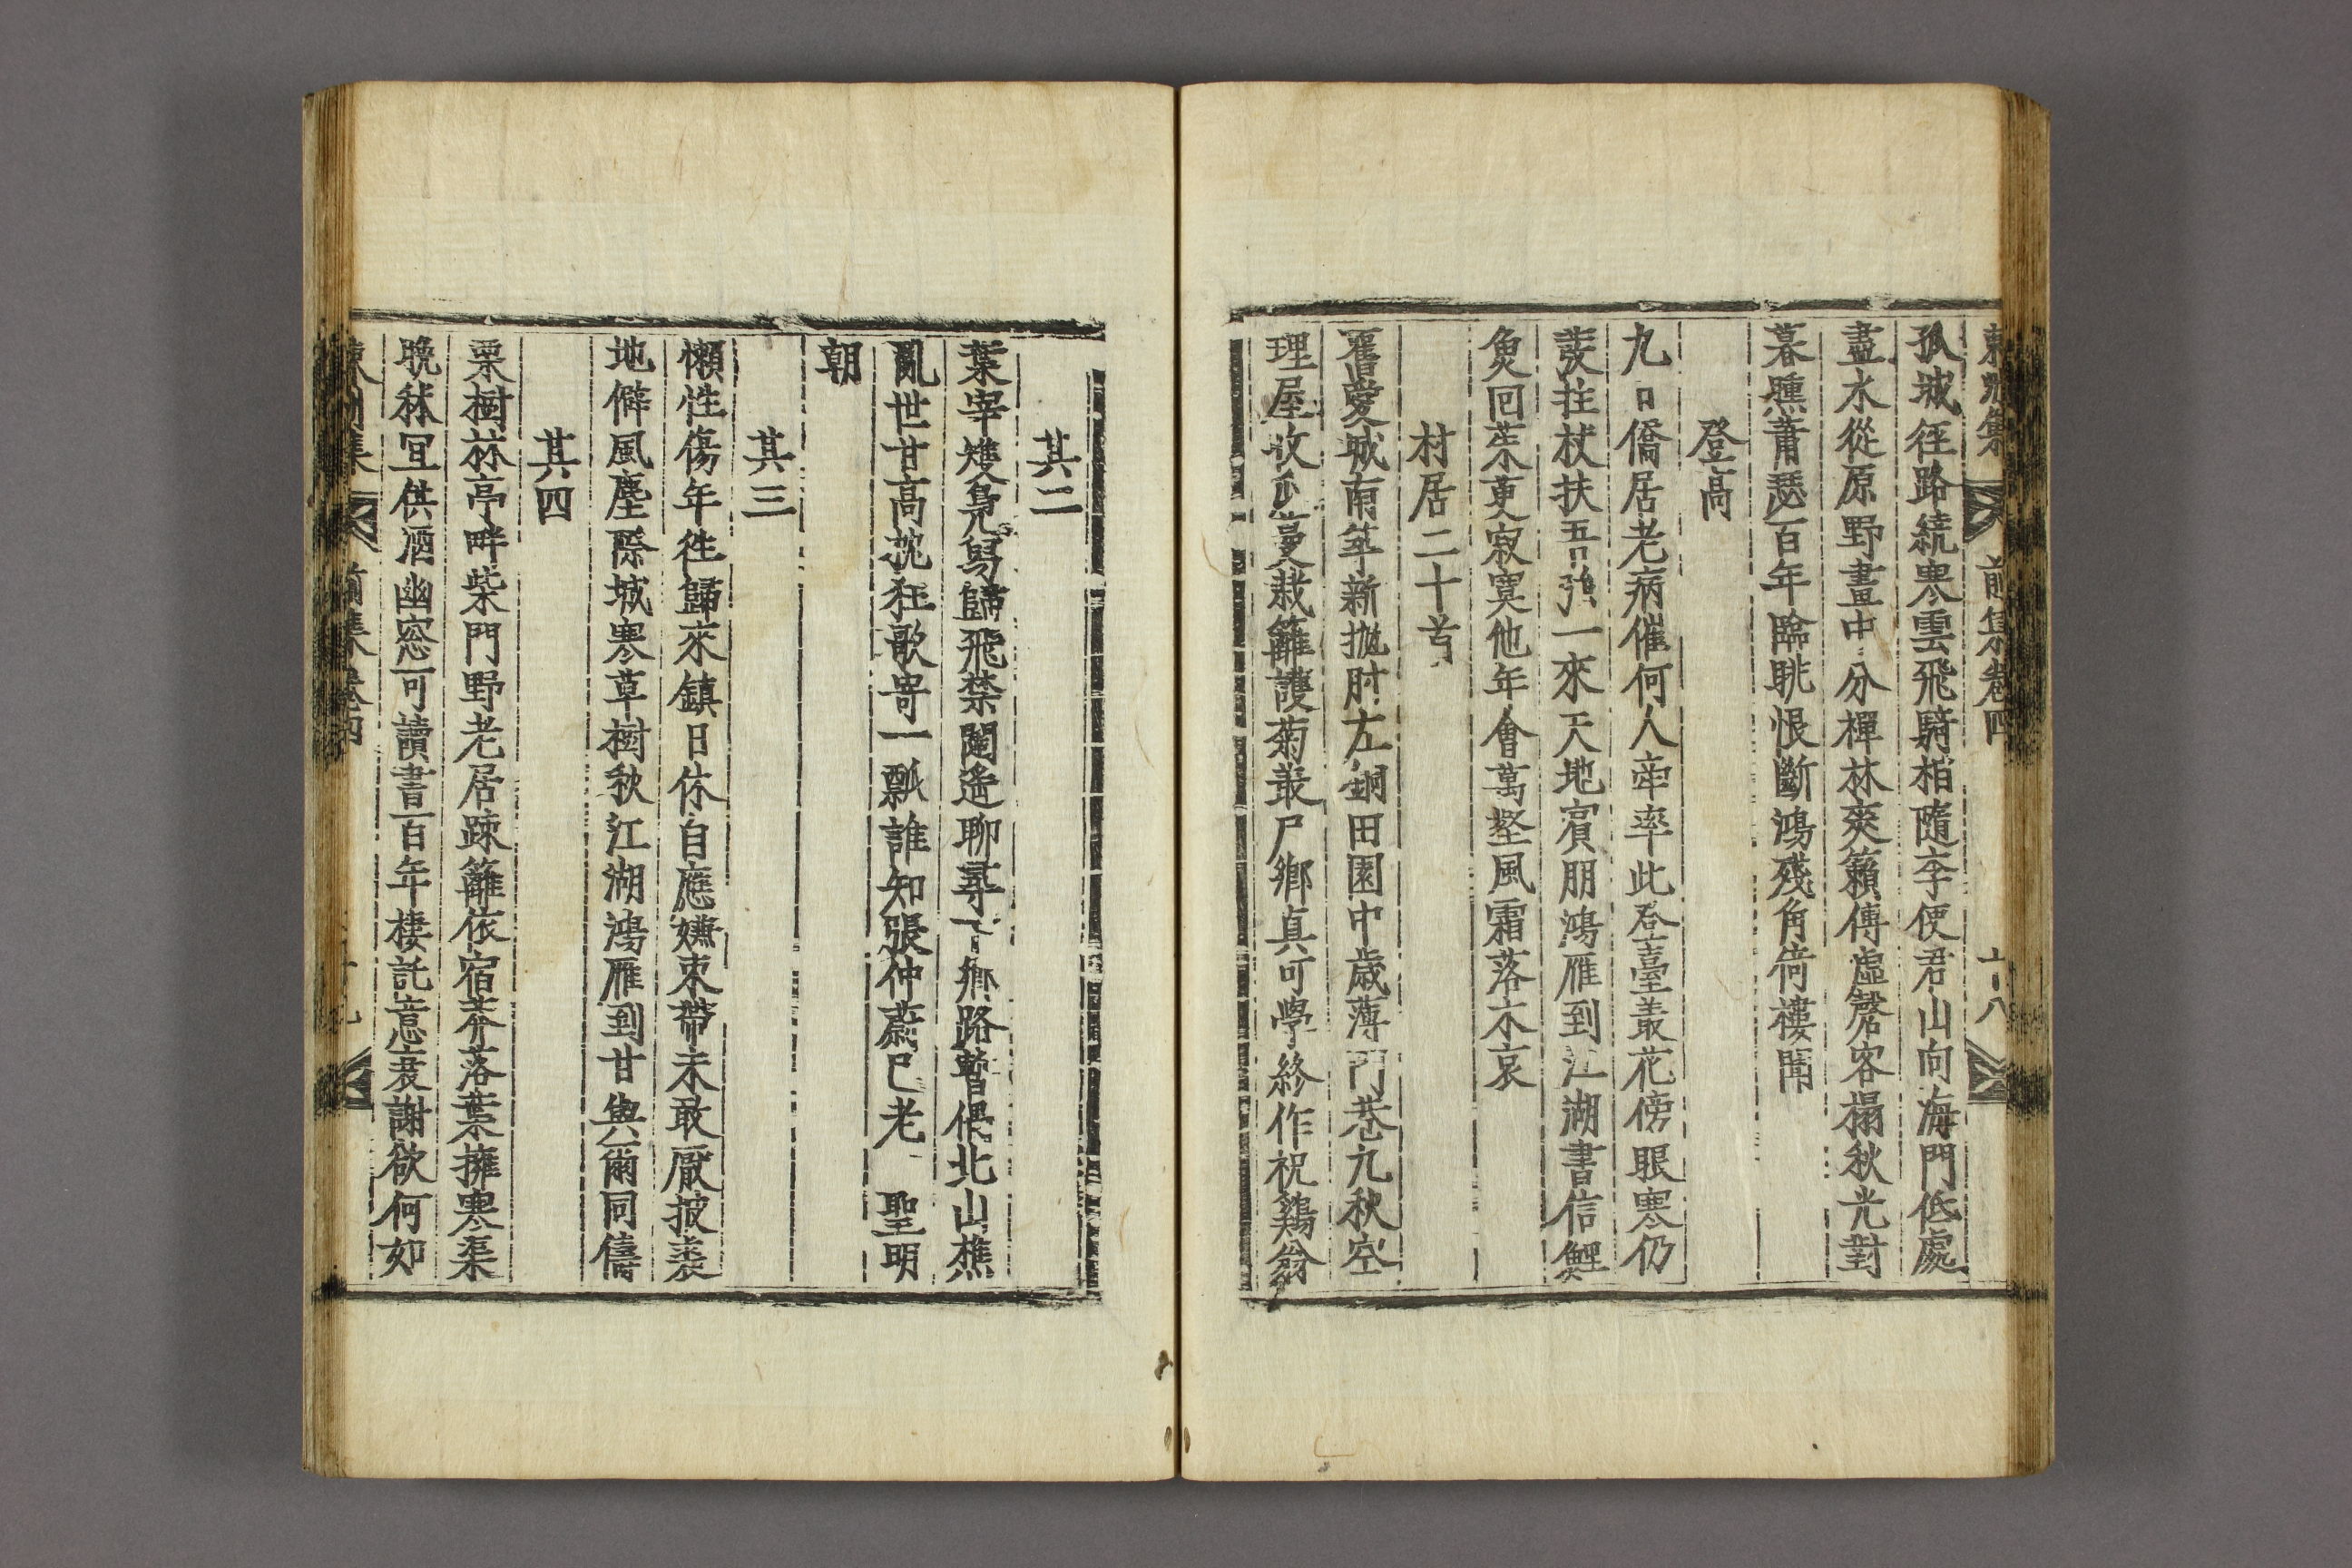 東州集 前集卷四 十八
孤城徑路繞寒雲飛騎相隨李使君山向海門低處
盡水從原野畫中分禪林爽籟傳虛磬客榻秋光對
暮曛蕭瑟百年臨眺恨斷鴻殘角倚樓聞
登高
九日僑居老病催何人牽率此登臺叢花傍眼寒仍
發拄杖扶吾强一來天地賓朋鴻雁到江湖書信鯉
魚回茱萸寂寞他年會萬壑風霜落木哀
村居二十首
舊愛城南筑新抛肘左銅田園中歲薄門巷九秋空
理屋收瓜蔓栽籬護菊叢尸鄉眞可學終作祝鷄翁
其二
葉宰雙鳧舄歸飛禁闥遙聊尋下鄕路暫偎北山樵
亂世甘高枕狂歌寄一瓢誰知張仲蔚已老 聖明
朝
其三
懶性傷年徃歸來鎭日休自應嫌束帶未敢厭披裘
地僻風塵際城寒草樹秋江湖鴻雁到甘與爾同儔
其四
栗樹林亭畔柴門野老居踈籬依宿莽落葉擁寒渠
晚秫宜供酒幽窓可讀書百年棲託意衰謝欲何如
東州集 前集卷四